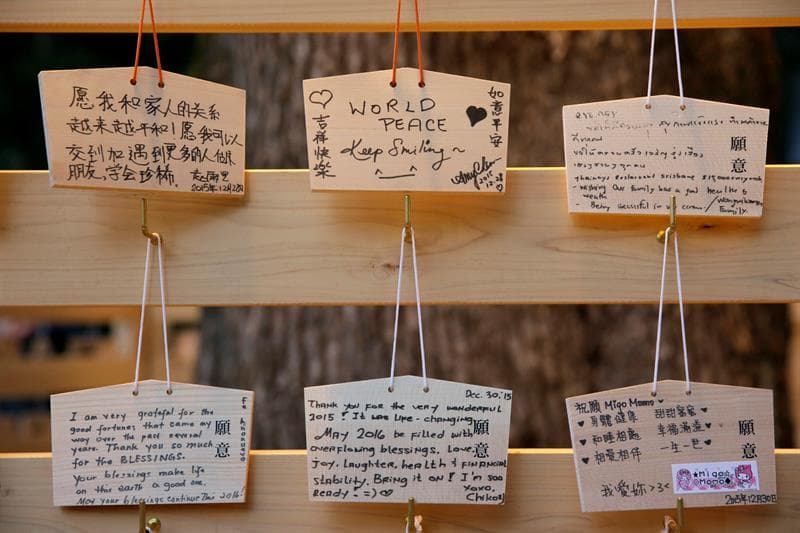 愿我和家人的关系
越来越平和！愿我可以
交到加遇到更多的人做
朋友，学会珍惜.
2015年12月28日
吉祥快樂
WORLD
PEACE
Keep Smiling~
如意平安
2015
12.28
願意
- wishing Our family has a good health &
wealth
- Being successful in
Family.
I am very grateful for the
good fortunes that came my
way over the past several
years. Thank you so much
for the BLESSINGS.
Your blessings make life
on this earth a good one.
May your blessings continue thru 2016!
願意
Dec. 30.15
THANK YOU FOR THE VERY WONDERFUL
2015! IT WAS LIFE-CHANGING.
MAY 2016 BE FILLED WITH
OVERFLOWING BLESSINGS. LOVE,
JOY. LAUGHTER, HEALTH & FINANCIAL
STABILITY. BRING IT ON! I'M SOO
READY! =)♡
XOXO,
CHIKO
願意
祝願 Miqo Momo ♥
♥ 身體健康 甜甜蜜蜜 ♥
♥ 和睦相處 幸福滿溢 ♥
♥ 相愛相伴 一生一世 ♥
我愛妳 >3<
★Miqo
Momo♥
2015年12月30日
願意